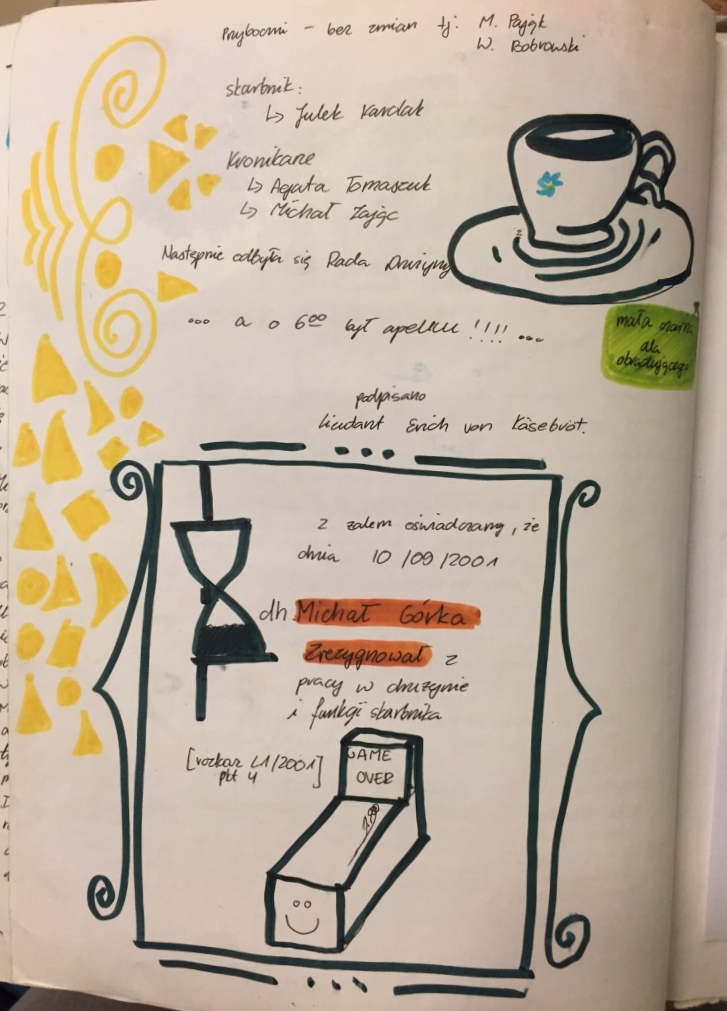 Przyboczni - bez zmian tj: M. Pająk
W. Bobrowski
skarbnik:
↳ Julek Kardak
Kronikarze
↳ Agata Tomaszuk
↳ Michał Zając
Następnie odbyła się Rada Drużyny
... a o 6⁰⁰ był apelku !!!! ...
mała czarna
dla
obradującego
podpisano
Lieudant Erich von Käsebrot.
Z żalem oświadczamy, że
dnia 10/09/2001
dh. Michał Górka
Zrezygnował z
pracy w drużynie
i funkcji skarbnika
[rozkaz L1/2001]
pkt 4
GAME
OVER